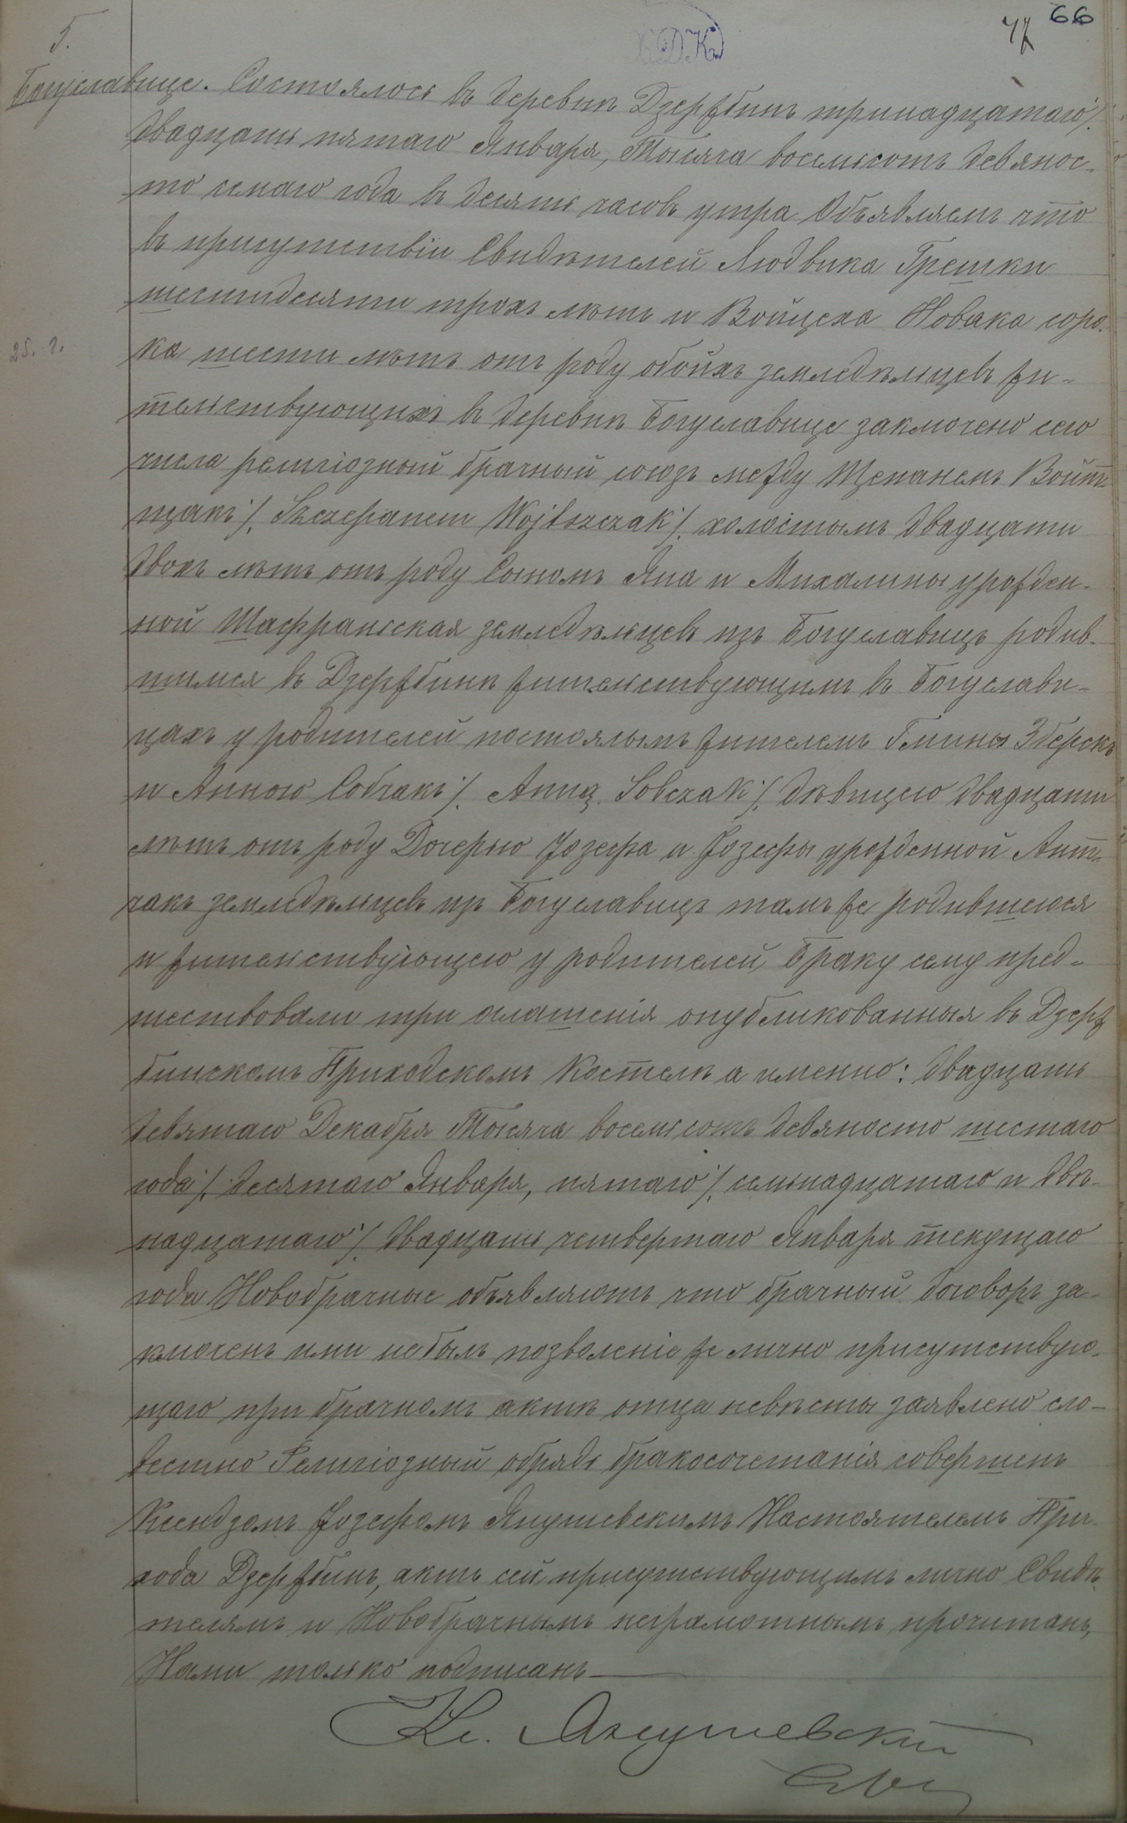 5.
66
Богуславице. Состоялось въ деревнѣ Дзержбинъ тринадцатаго /
двадцать пятаго Января, Тысяча восемьсотъ девянос-
то семаго года въ десять часовъ утра Объявляемъ что
въ присутствіи Свидѣтелей Людвика Грешки
шестидесяти трохъ лѣтъ и Войцеха Новака соро-
ка шести лѣтъ отъ роду обойхъ земледѣльцевъ жи-
тельствующихъ въ деревнѣ Богуславице заключено сего
числа религіозный брачный союзъ между Щепанемъ Войт-
щакъ /. Szczepanem Wojtszczak /. холостымъ двадцати
двохъ лѣтъ отъ роду Сыномъ Яна и Михалины урожден-
ной Шафранская земледѣльцевъ изъ Богуславицъ родив-
шимся въ Дзержбинѣ жительствующимъ въ Богуслави-
цахъ у родителей постоялымъ жителемъ Гмины Зберскъ
и Анною Собчакъ /. Anną Sobczak /. дѣвицею двадцати
лѣтъ отъ роду Дочерью Іозефа и Іозефы урожденной Ант-
чакъ земледѣльцевъ изъ Богуславицъ тамъ же родившеюся
и жительствующею у родителей, Браку сему пред-
шествовали три оглашенія опубликованныя въ Дзерж
бинскомъ Приходскомъ Костелѣ а именно: двадцать
девятаго Декабря Тысяча восемьсотъ девяносто шестаго
года /. десятаго Января, пятаго /. семьнадцатаго и двѣ-
надцатаго /. двадцать четвертаго Января текущаго
года Новобрачные объявляютъ что брачный договоръ за-
ключенъ ими небылъ позволеніе же лично присутствую-
щаго при брачномъ актѣ отца невѣсты заявлено сло-
вестно Религіозный обрядъ бракосочетанія совершенъ
Ксендзомъ Іозефомъ Янушевскимъ Настоятелемъ При-
хода Дзержбинъ, актъ сей присутствующимъ лично Свидѣ-
телямъ и Новобрачнымъ неграмотнымъ прочитанъ,
Нами только подписанъ
Кс. Янушевскій